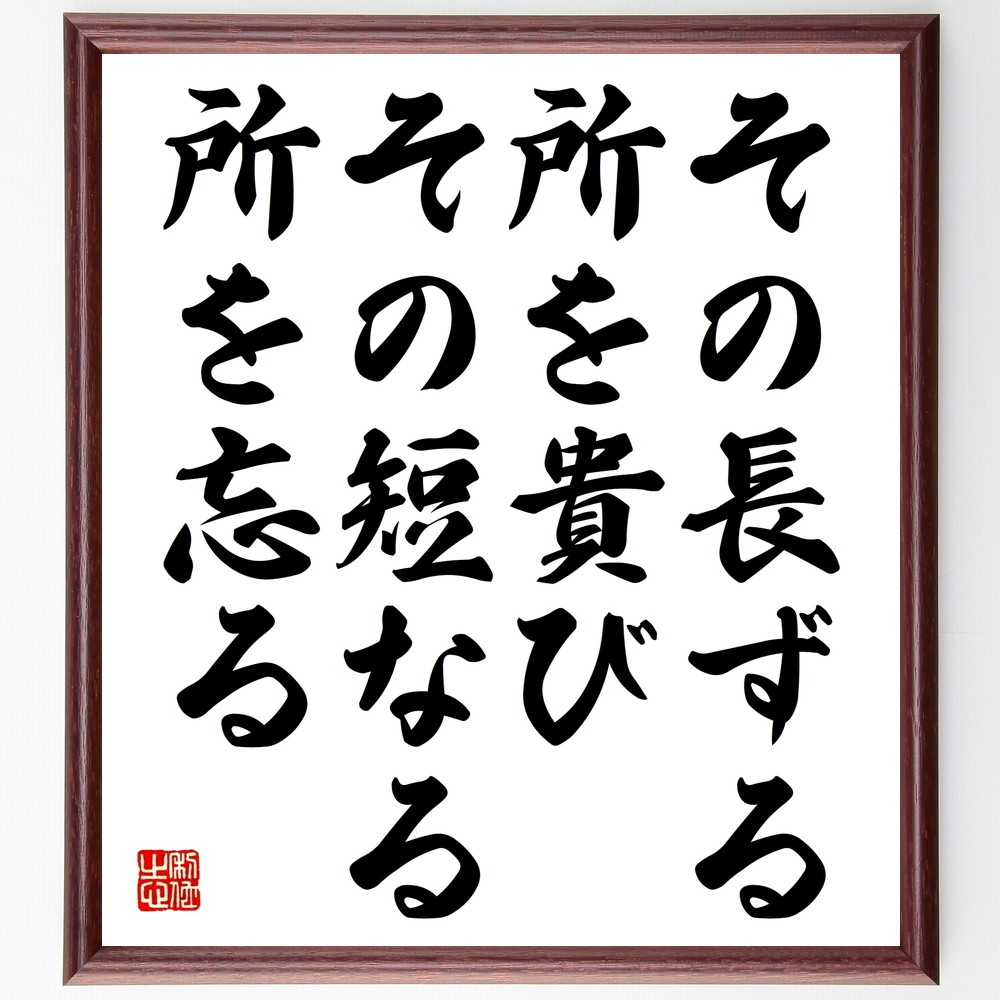 その長ずる
所を貴び
その短なる
所を忘る